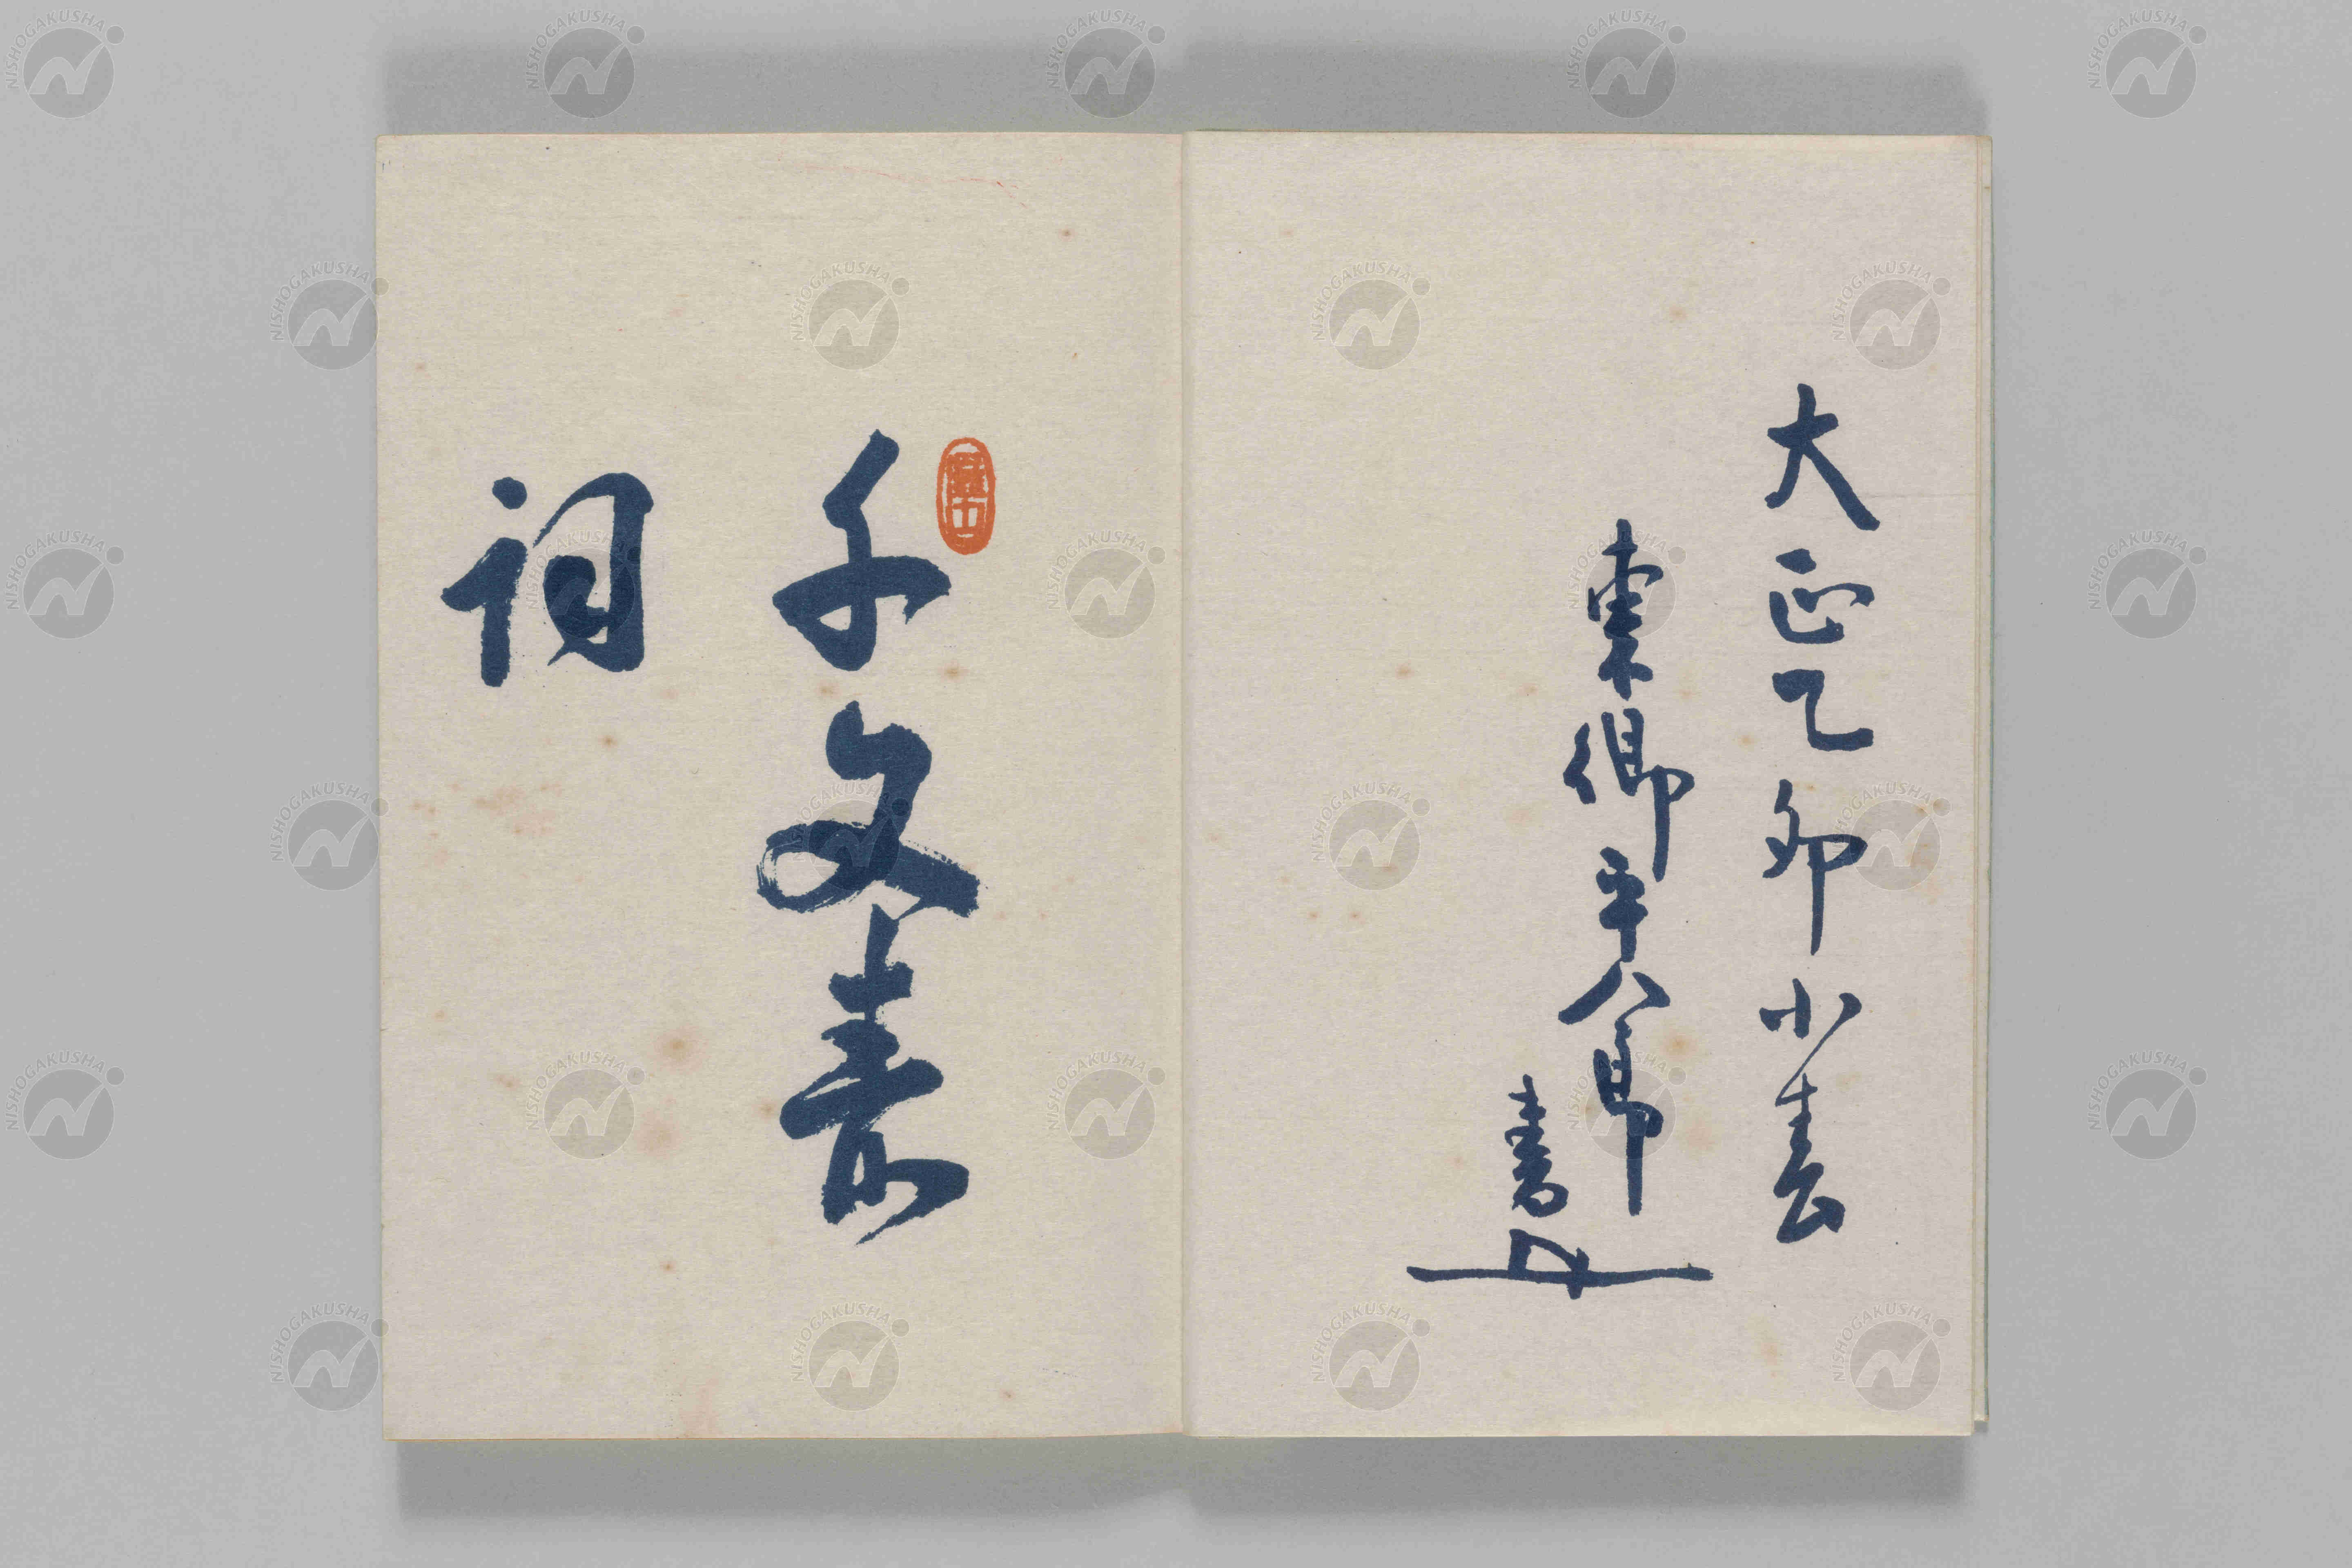 大正乙卯小春
東郷平八郎
書
千文素
詞
NISHOGAKUSHA